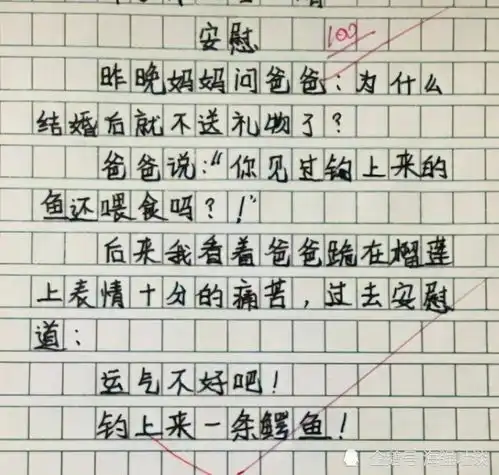 安慰
100
昨晚妈妈问爸爸：为什么
结婚后就不送礼物了？
爸爸说：“你见过钓上来的
鱼还喂食吗？！”
后来我看着爸爸跪在榴莲
上表情十分的痛苦，过去安慰
道：
运气不好吧！
钓上来一条鳄鱼！